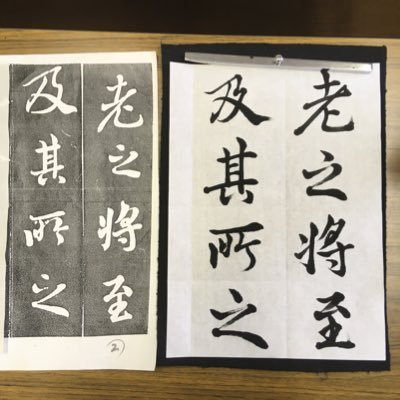 老之将至
及其所之
②
老之将至
及其所之